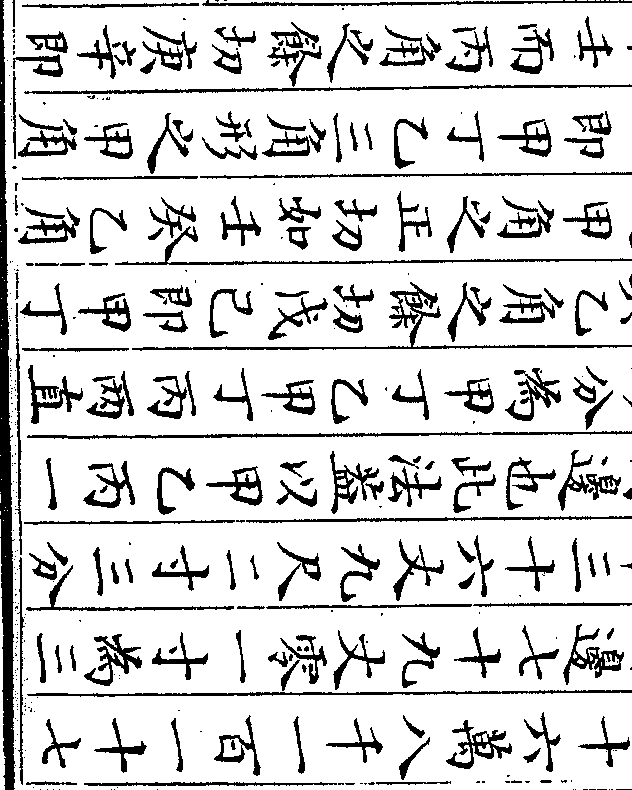 十六萬八千一百一十七
邊七十九丈零一寸為三
三十六丈九尺二寸三分
邊也此法蓋以甲乙丙一
分為甲丁乙甲丁丙兩直
乙角之餘切戊己即甲丁
甲角之正切如壬癸乙角
即甲丁乙三角形之甲角
壬而丙角之餘切庚辛即